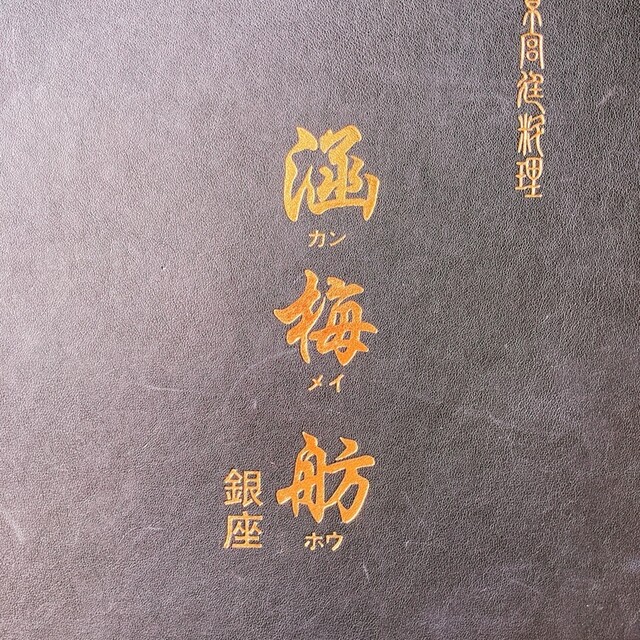 京宮廷料理
涵梅舫
カンメイホウ
銀座